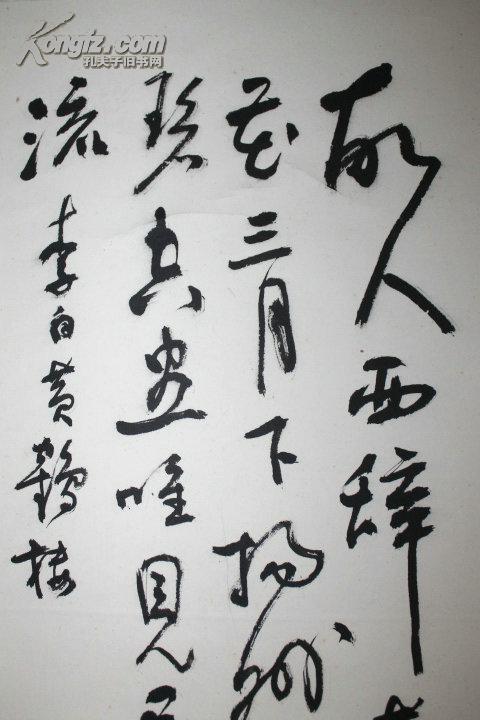 Kongfz.com
孔夫子旧书网
故人西辞
花三月下扬州
碧空尽唯见
流
李白黄鹤楼